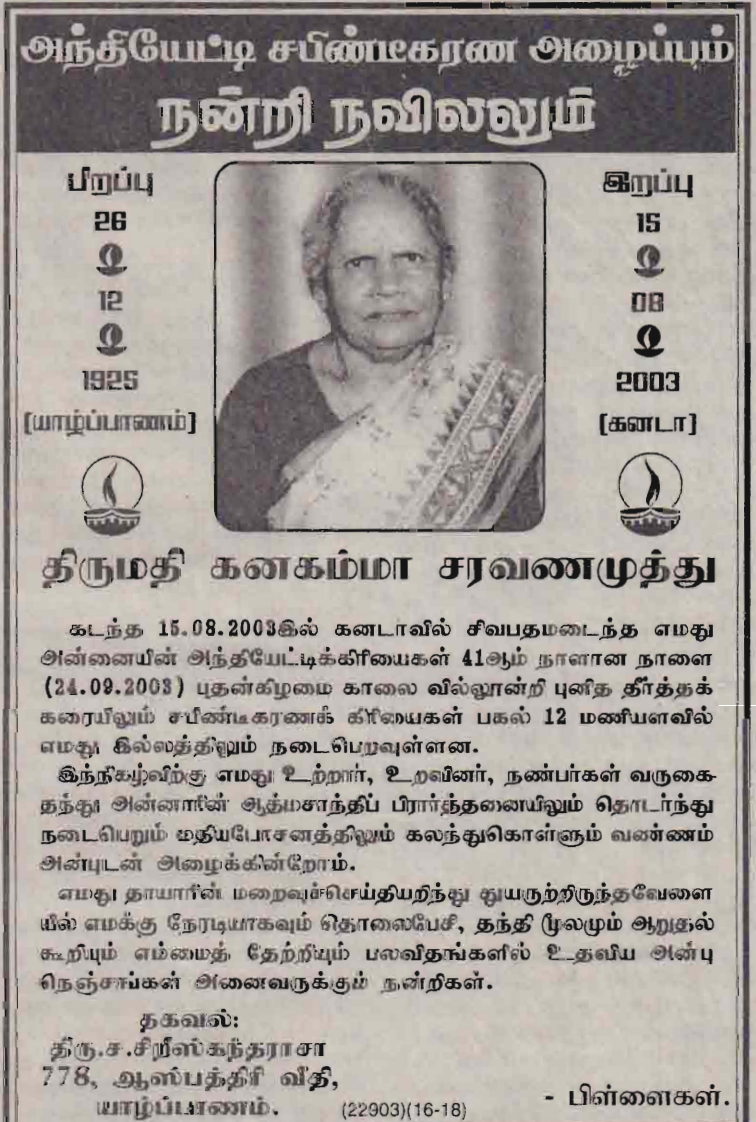 அந்தியேட்டி சபிண்டீகரண அழைப்பும்
நன்றி நவிலலும்
பிறப்பு
26
12
1925
[யாழ்ப்பாணம்]
இறப்பு
15
08
2003
[கனடா]
திருமதி கனகம்மா சரவணமுத்து
கடந்த 15.08.2003இல் கனடாவில் சிவபதமடைந்த எமது
அன்னையின் அந்தியேட்டிக்கிரியைகள் 41ஆம் நாளான நாளை
(24.09.2003) புதன்கிழமை காலை வில்லூன்றி புனித தீர்த்தக்
கரையிலும் சபிண்டிகரணக் கிரியைகள் பகல் 12 மணியளவில்
எமது இல்லத்திலும் நடைபெறவுள்ளன.
இந்நிகழ்விற்கு எமது உற்றார், உறவினர், நண்பர்கள் வருகை-
தந்து அன்னாரின் ஆத்மசாந்திப் பிரார்த்தனையிலும் தொடர்ந்து
நடைபெறும் மதியபோசனத்திலும் கலந்துகொள்ளும் வண்ணம்
அன்புடன் அழைக்கின்றோம்.
எமது தாயாரின் மறைவுச்செய்தியறிந்து துயருற்றிருந்தவேளை
யில் எமக்கு நேரடியாகவும் தொலைபேசி, தந்தி மூலமும் ஆறுதல்
கூறியும் எம்மைத் தேற்றியும் பலவிதங்களில் உதவிய அன்பு
நெஞ்சங்கள் அனைவருக்கும் நன்றிகள்.
தகவல்:
திரு.ச.சிறீஸ்கந்தராசா
778, ஆஸ்பத்திரி வீதி,
யாழ்ப்பாணம்.
(22903)(16-18)
- பிள்ளைகள்.